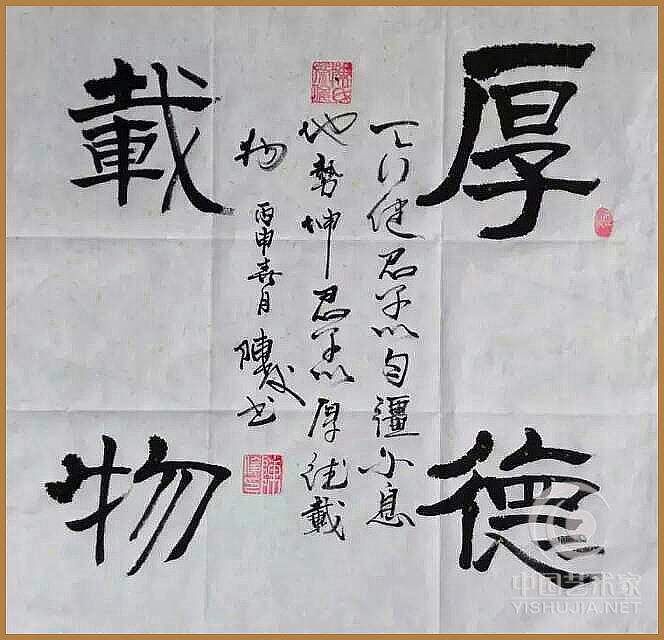 厚德
載物
天行健君子以自疆不息
地勢坤君子以厚德載
物
丙申喜月 陳 書
中国艺术家
YISHUJIA.NET